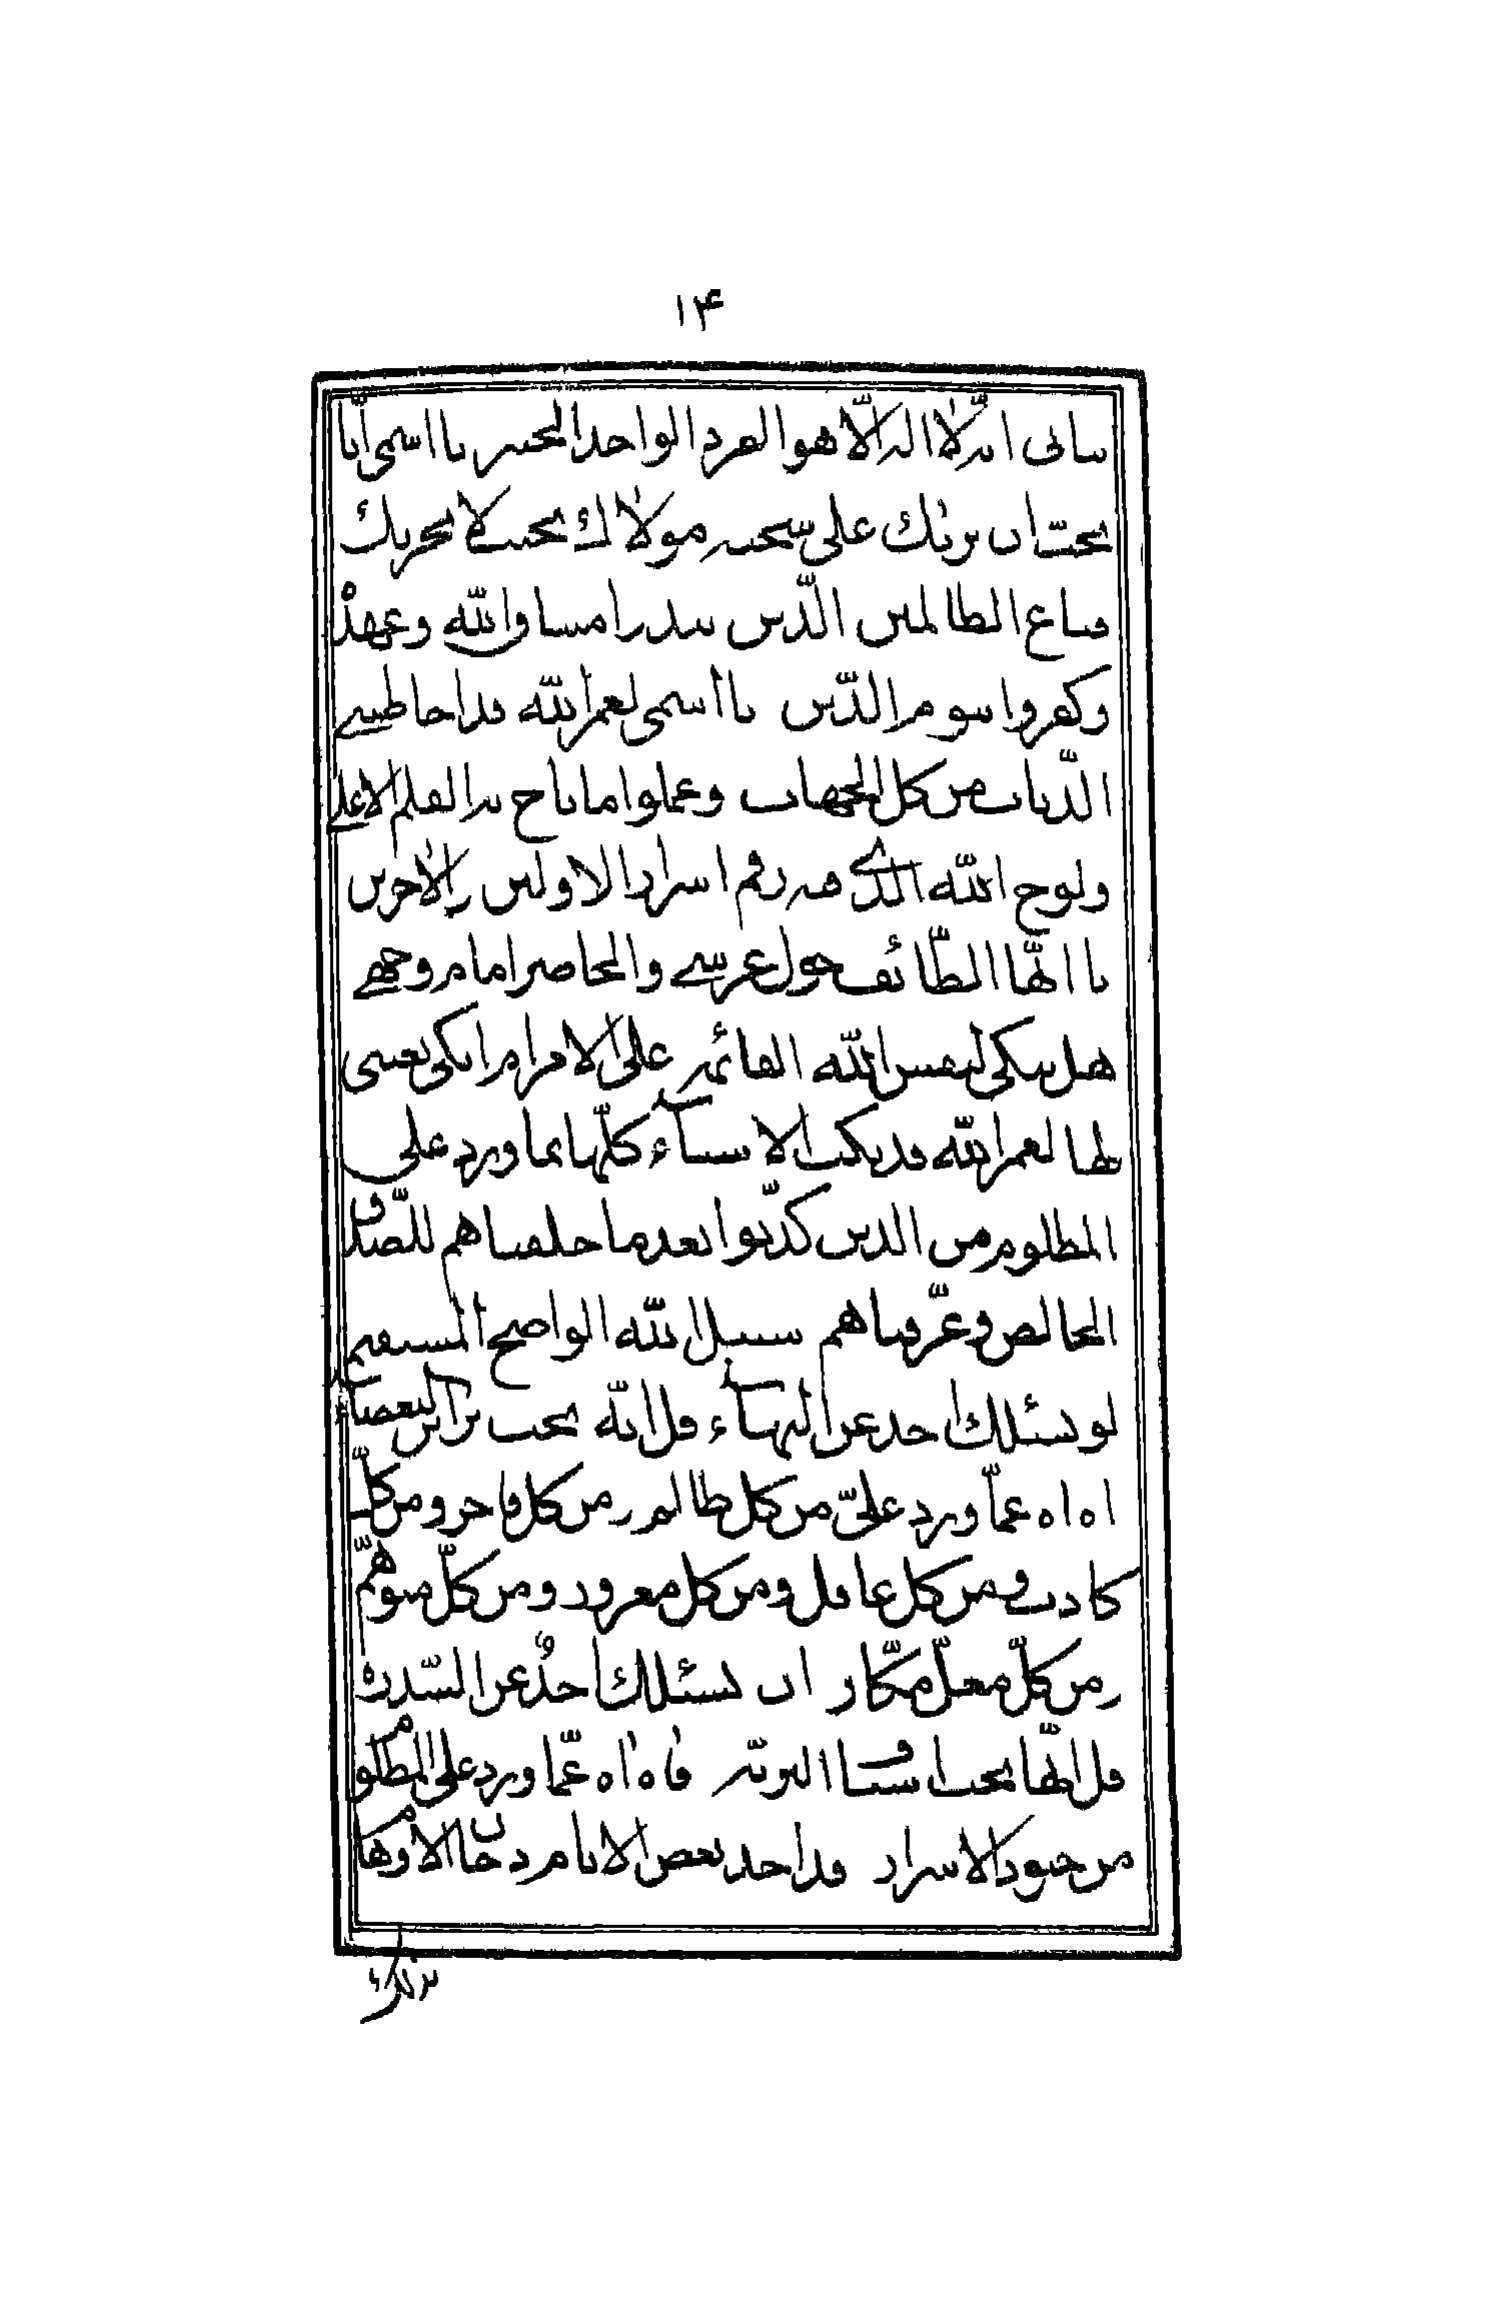 ۱۴
بيانی انه لا اله الا هو الفرد الواحد الخبير يا اسمی انا
نحب ان نريك علی سجية مولاك بحيث لا يحزنك
نباع الظالمين الذين نبذوا ميثاق الله وعهده
وكفروا بيوم الدين يا اسمی لعمر الله قد احاطتنی
الذياب من كل الجهات وعملوا ما ناح به القلم الاعلی
ولوح الله الذی فيه رقم اسرار الاولين و الاخرين
يا ايها الطائف حول عرشی والحاضر امام وجهی
هل تبكی لنفس الله القائمة علی الامر ام ابكی نفسی
لها لعمر الله قد بكت الاشياء كلها بما ورد علی
المظلوم من الذين كذبوا بعد ما خلقناهم للصدق
الخالص وعرفناهم سبيل الله الواضح المستقيم
لو يسئلك احد عن البهاء قل انه تحت براثن البغضاء
اه اه عما ورد علیّ من كل ظالم و من كل فاجر و من كل
كاذب و من كل غافل و من كل مغرور و من كلّ متوهم
و من كلّ مغلّ مكّار ان يسئلك احدٌ عن السّدرة
قل انّها تحت اسياف البرية فاه اه عمّا ورد علی المظلوم
من جنود الاشرار قد اخذ بعض الايام دخان الاوهام
نريك